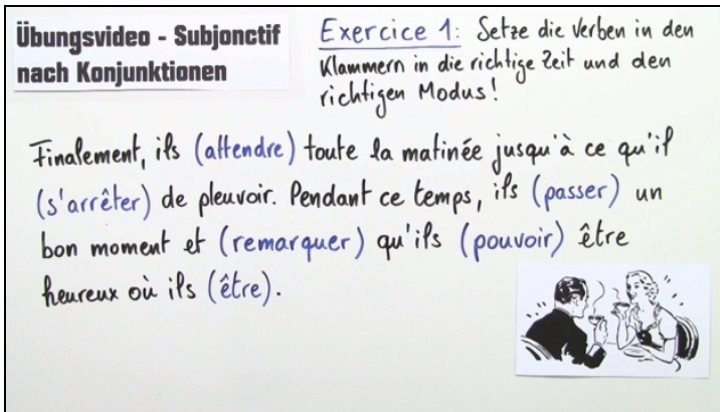 Übungsvideo - Subjonctif
nach Konjunktionen
Exercice 1: Setze die Verben in den
Klammern in die richtige Zeit und den
richtigen Modus!
Finalement, ils (attendre) toute la matinée jusqu'à ce qu'il
(s'arrêter) de pleuvoir. Pendant ce temps, ils (passer) un
bon moment et (remarquer) qu'ils (pouvoir) être
heureux où ils (être).